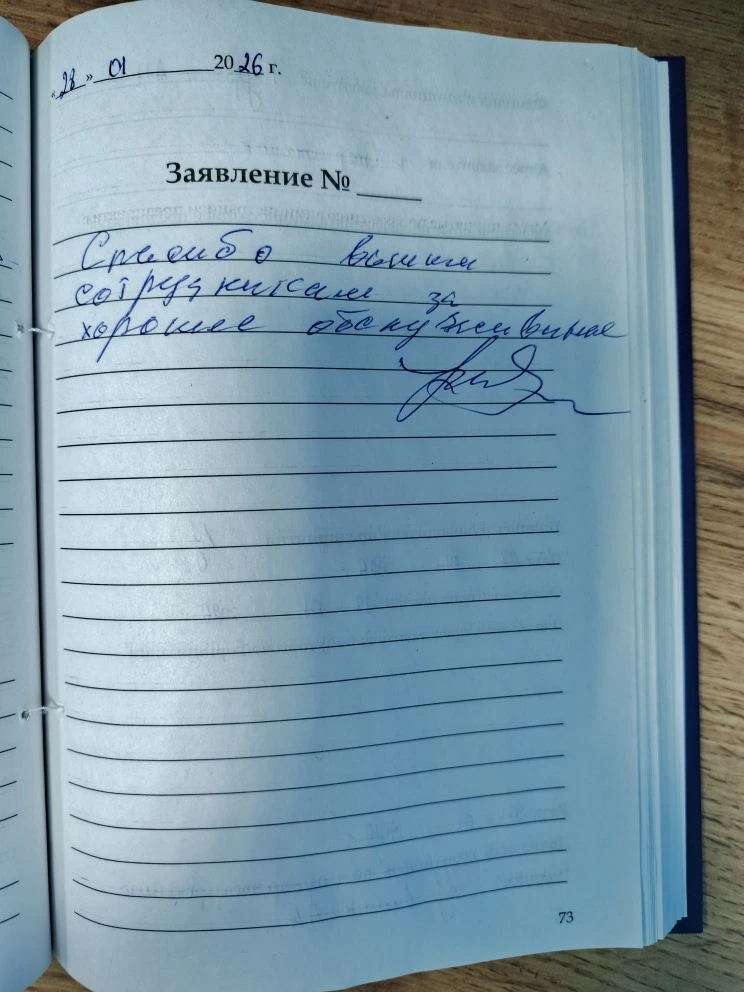 «28» 01 2026 г.
Заявление №
Спасибо вашим
сотрудникам за
хорошее обслуживание
73